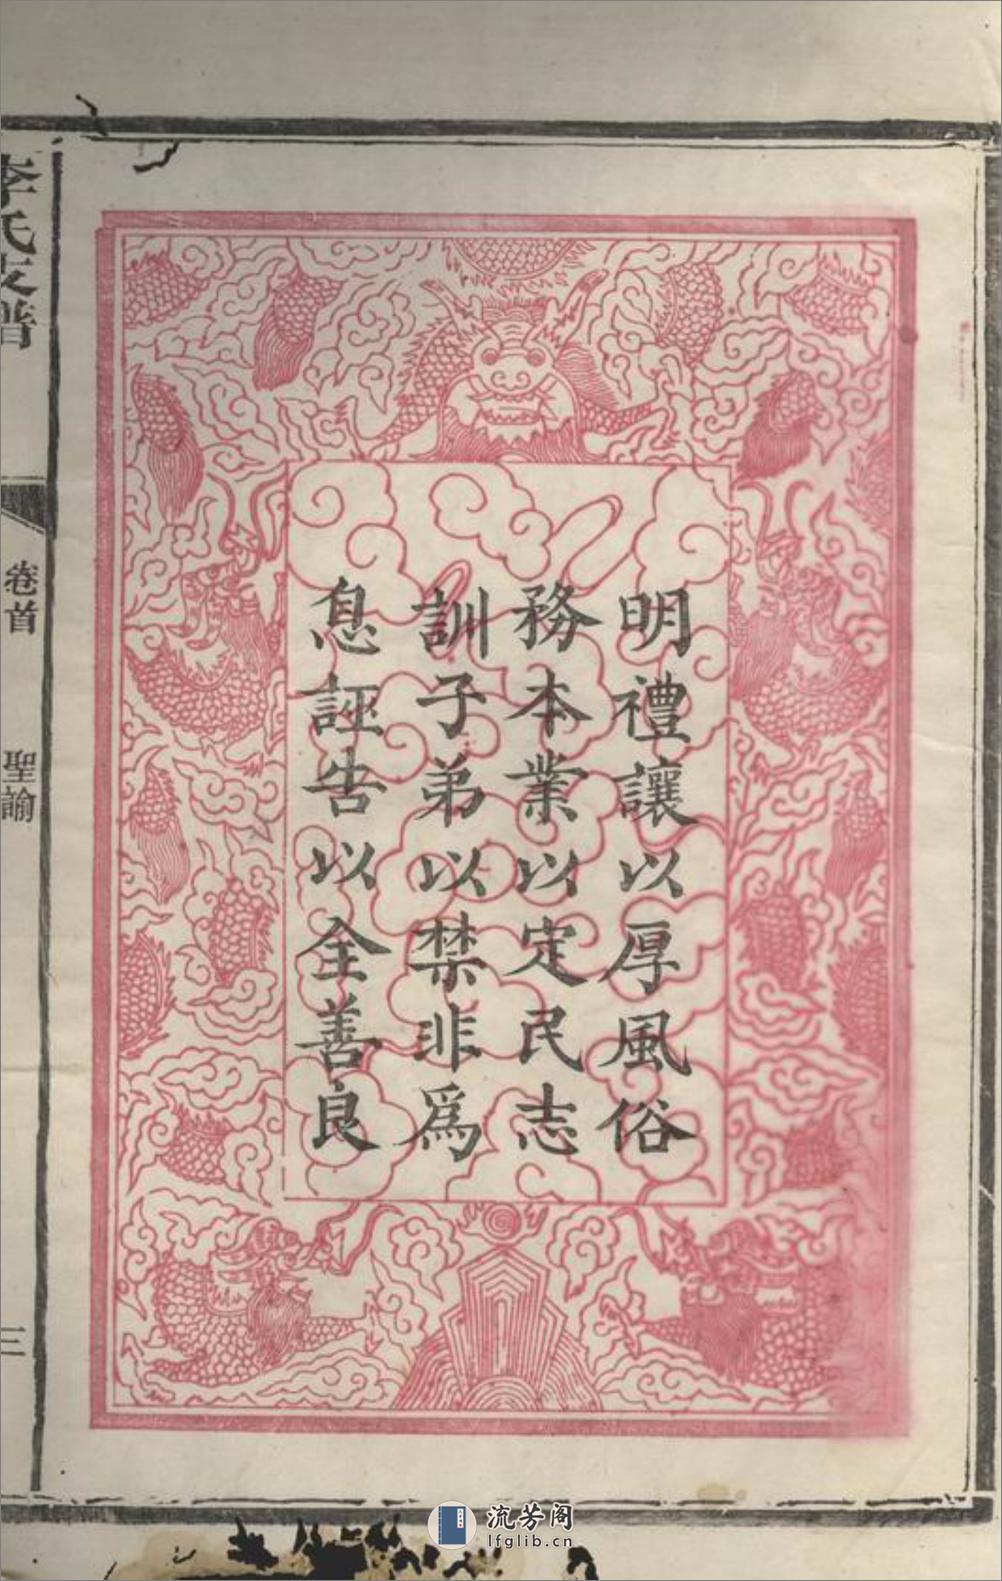 明禮讓以厚風俗
務本業以定民志
訓子弟以禁非爲
息誣告以全善良
李氏支譜
卷首
聖諭
三
流芳阁
lfglib.cn